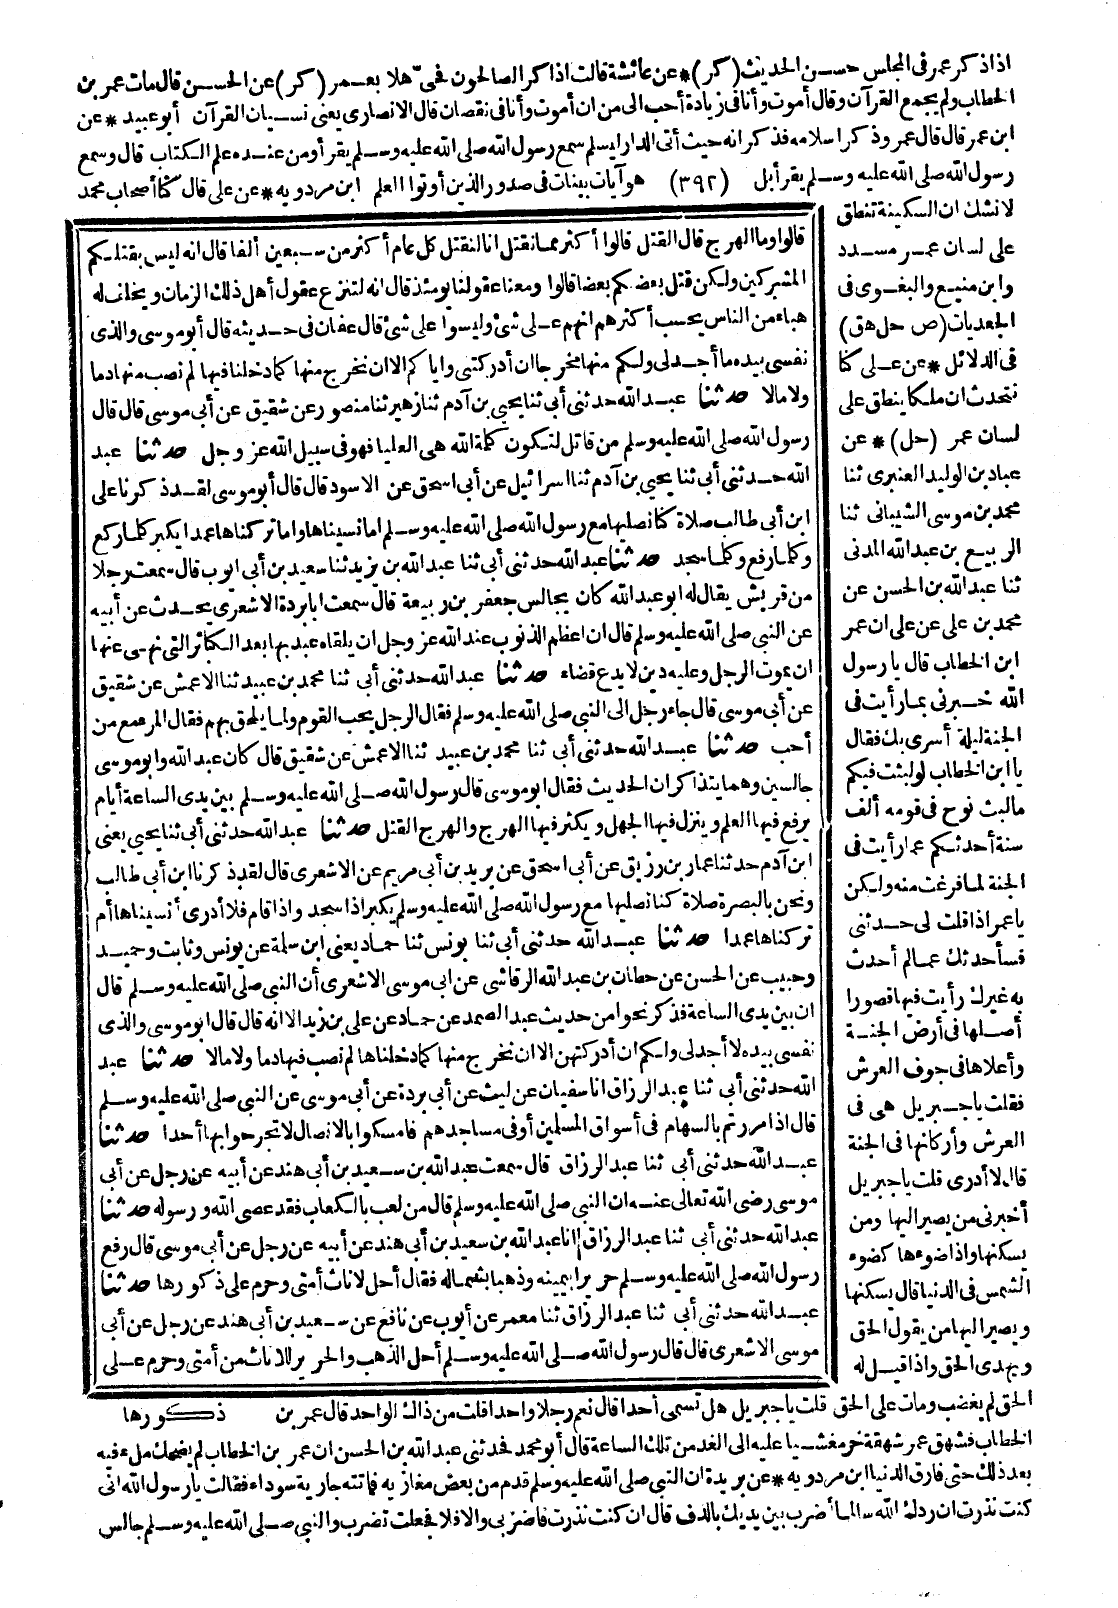 اذا ذكر عمر فى المجلس حسن الحديث (كر) * عن عائشة قالت اذا ذكر الصالحون فحى هلا بعمر (كر) عن الحسن قال مات عمر بن
الخطاب ولم يجمع القرآن وقال أموت وأنا فى زيادة أحب الى من ان أموت وأنا فى نقصان قال الانصارى يعنى نسيان القرآن أبو عبيد * عن
ابن عمر قال قال عمر وذكر اسلامه فذكر انه حيث أتى الدار ليسلم سمع رسول الله صلى الله عليه وسلم يقرأ ومن عنده علم الكتاب قال وسمع
رسول الله صلى الله عليه وسلم يقرأ بل (٣٩٢) هو آيات بينات فى صدور الذين أوتوا العلم ابن مردويه * عن على قال كنا أصحاب محمد
لا نشك ان السكينة تنطق
على لسان عمر مسدد
وابن منيع والبغوى فى
الجعديات (ص حل هق)
فى الدلائل * عن على كنا
نتحدث ان ملكا ينطق على
لسان عمر (حل) * عن
عباد بن الوليد العنبرى ثنا
محمد بن موسى الشيبانى ثنا
الربيع بن عبد الله المدنى
ثنا عبد الله بن الحسن عن
محمد بن على عن على ان عمر
ابن الخطاب قال يا رسول
الله خبرنى بما رأيت فى
الجنة ليلة أسرى بك فقال
يا ابن الخطاب لو لبثت فيكم
ما لبث نوح فى قومه ألف
سنة أحدثكم عما رأيت فى
الجنة لما فرغت منه ولكن
يا عمر اذا قلت لى حدثنى
فسأحدثك عما لم أحدث
به غيرك رأيت فيها قصورا
أصلها فى أرض الجنة
وأعلاها فى جوف العرش
فقلت يا جبريل هى فى
العرش وأركانها فى الجنة
قال لا أدرى قلت يا جبريل
أخبرنى من يصير اليها ومن
يسكنها واذا ضوءها كضوء
الشمس فى الدنيا قال يسكنها
ويصير اليها من يقول الحق
ويهدى الحق واذا قيل له
قالوا وما الهرج قال القتل قالوا أكثر مما نقتل انا لنقتل كل عام أكثر من سبعين ألفا قال انه ليس بقتلكم
المشركين ولكن قتل بعضكم بعضا قالوا ومعنا عقولنا يومئذ قال انه لتنزع عقول أهل ذلك الزمان ويخلف له
هباء من الناس يحسب أكثرهم انهم على شئ وليسوا على شئ قال عفان فى حديثه قال أبو موسى والذى
نفسى بيده ما أجد لى ولكم منها مخرجا ان أدركتنى واياكم الا ان نخرج منها كما دخلنا فيها لم نصب منها دما
ولا مالا حدثنا عبد الله حدثنى أبى ثنا يحيى بن آدم ثنا زهير ثنا منصور عن شقيق عن أبى موسى قال قال
رسول الله صلى الله عليه وسلم من قاتل لتكون كلمة الله هى العليا فهو فى سبيل الله عز وجل حدثنا عبد
الله حدثنى أبى ثنا يحيى بن آدم ثنا اسرائيل عن أبى اسحق عن الاسود قال قال أبو موسى لقد ذكرنا على
ابن أبى طالب صلاة كنا نصليها مع رسول الله صلى الله عليه وسلم اما نسيناها واما تركناها عمدا يكبر كلما ركع
وكلما رفع وكلما سجد حدثنا عبد الله حدثنى أبى ثنا عبد الله بن يزيد ثنا سعيد بن أبى ايوب قال سمعت رجلا
من قريش يقال له ابو عبد الله كان يجالس جعفر بن ربيعة قال سمعت ابا بردة الاشعرى يحدث عن أبيه
عن النبى صلى الله عليه وسلم قال ان اعظم الذنوب عند الله عز وجل ان يلقاه عبد بها بعد الكبائر التى نهى عنها
ان يموت الرجل وعليه دين لا يدع قضاء حدثنا عبد الله حدثنى أبى ثنا محمد بن عبيد ثنا الاعمش عن شقيق
عن أبى موسى قال جاء رجل الى النبى صلى الله عليه وسلم فقال الرجل يحب القوم ولما يلحق بهم فقال المرء مع من
أحب حدثنا عبد الله حدثنى أبى ثنا محمد بن عبيد ثنا الاعمش عن شقيق قال كان عبد الله وابو موسى
جالسين وهما يتذاكران الحديث فقال ابو موسى قال رسول الله صلى الله عليه وسلم بين يدى الساعة أيام
يرفع فيها العلم وينزل فيها الجهل ويكثر فيها الهرج والهرج القتل حدثنا عبد الله حدثنى أبى ثنا يحيى يعنى
ابن آدم حدثنا عمار بن رزيق عن أبى اسحق عن بريد بن أبى مريم عن الاشعرى قال لقد ذكرنا ابن أبى طالب
ونحن بالبصرة صلاة كنا نصليها مع رسول الله صلى الله عليه وسلم يكبر اذا سجد واذا قام فلا أدرى أنسيناها أم
تركناها عمدا حدثنا عبد الله حدثنى أبى ثنا يونس ثنا حماد يعنى ابن سلمة عن يونس وثابت وحميد
وحبيب عن الحسن عن حطان بن عبد الله الرقاشى عن ابى موسى الاشعرى أن النبى صلى الله عليه وسلم قال
ان بين يدى الساعة فذكر نحوا من حديث عبد الصمد عن حماد عن على بن زيد الا انه قال قال ابو موسى والذى
نفسى بيده لا أجد لى ولكم ان أدركتهن الا ان نخرج منها كما دخلناها لم نصب فيها دما ولا مالا حدثنا عبد
الله حدثنى أبى ثنا عبد الرزاق انا سفيان عن ليث عن أبى بردة عن أبى موسى عن النبى صلى الله عليه وسلم
قال اذا مررتم بالسهام فى أسواق المسلمين أو فى مساجدهم فامسكوا بالانصال لا تجرحوا بها أحدا حدثنا
عبد الله حدثنى أبى ثنا عبد الرزاق قال سمعت عبد الله بن سعيد بن أبى هند عن أبيه عن رجل عن أبى
موسى رضى الله تعالى عنه ان النبى صلى الله عليه وسلم قال من لعب بالكعاب فقد عصى الله ورسوله حدثنا
عبد الله حدثنى أبى ثنا عبد الرزاق انا عبد الله بن سعيد بن أبى هند عن أبيه عن رجل عن أبى موسى قال رفع
رسول الله صلى الله عليه وسلم حريرا بيمينه وذهبا بشماله فقال أحل لاناث أمتى وحرم على ذكورها حدثنا
عبد الله حدثنى أبى ثنا عبد الرزاق ثنا معمر عن أيوب عن نافع عن سعيد بن أبى هند عن رجل عن أبى
موسى الاشعرى قال قال رسول الله صلى الله عليه وسلم أحل الذهب والحرير للاناث من أمتى وحرم على
ذكورها
الحق لم يغضب ومات على الحق قلت يا جبريل هل تسمى أحدا قال نعم رجلا واحدا قلت من ذاك الواحد قال عمر بن
الخطاب فشهق عمر شهقة خر مغشيا عليه الى الغد من تلك الساعة قال أبو محمد فحدثنى عبد الله بن الحسن ان عمر بن الخطاب لم يضحك ملء فيه
بعد ذلك حتى فارق الدنيا ابن مردويه * عن بريدة ان النبى صلى الله عليه وسلم قدم من بعض مغازيه فاتته جارية سوداء فقالت يا رسول الله انى
كنت نذرت ان ردك الله سالما أضرب بين يديك بالدف قال ان كنت نذرت فاضربى والا فلا فجعلت تضرب والنبى صلى الله عليه وسلم جالس